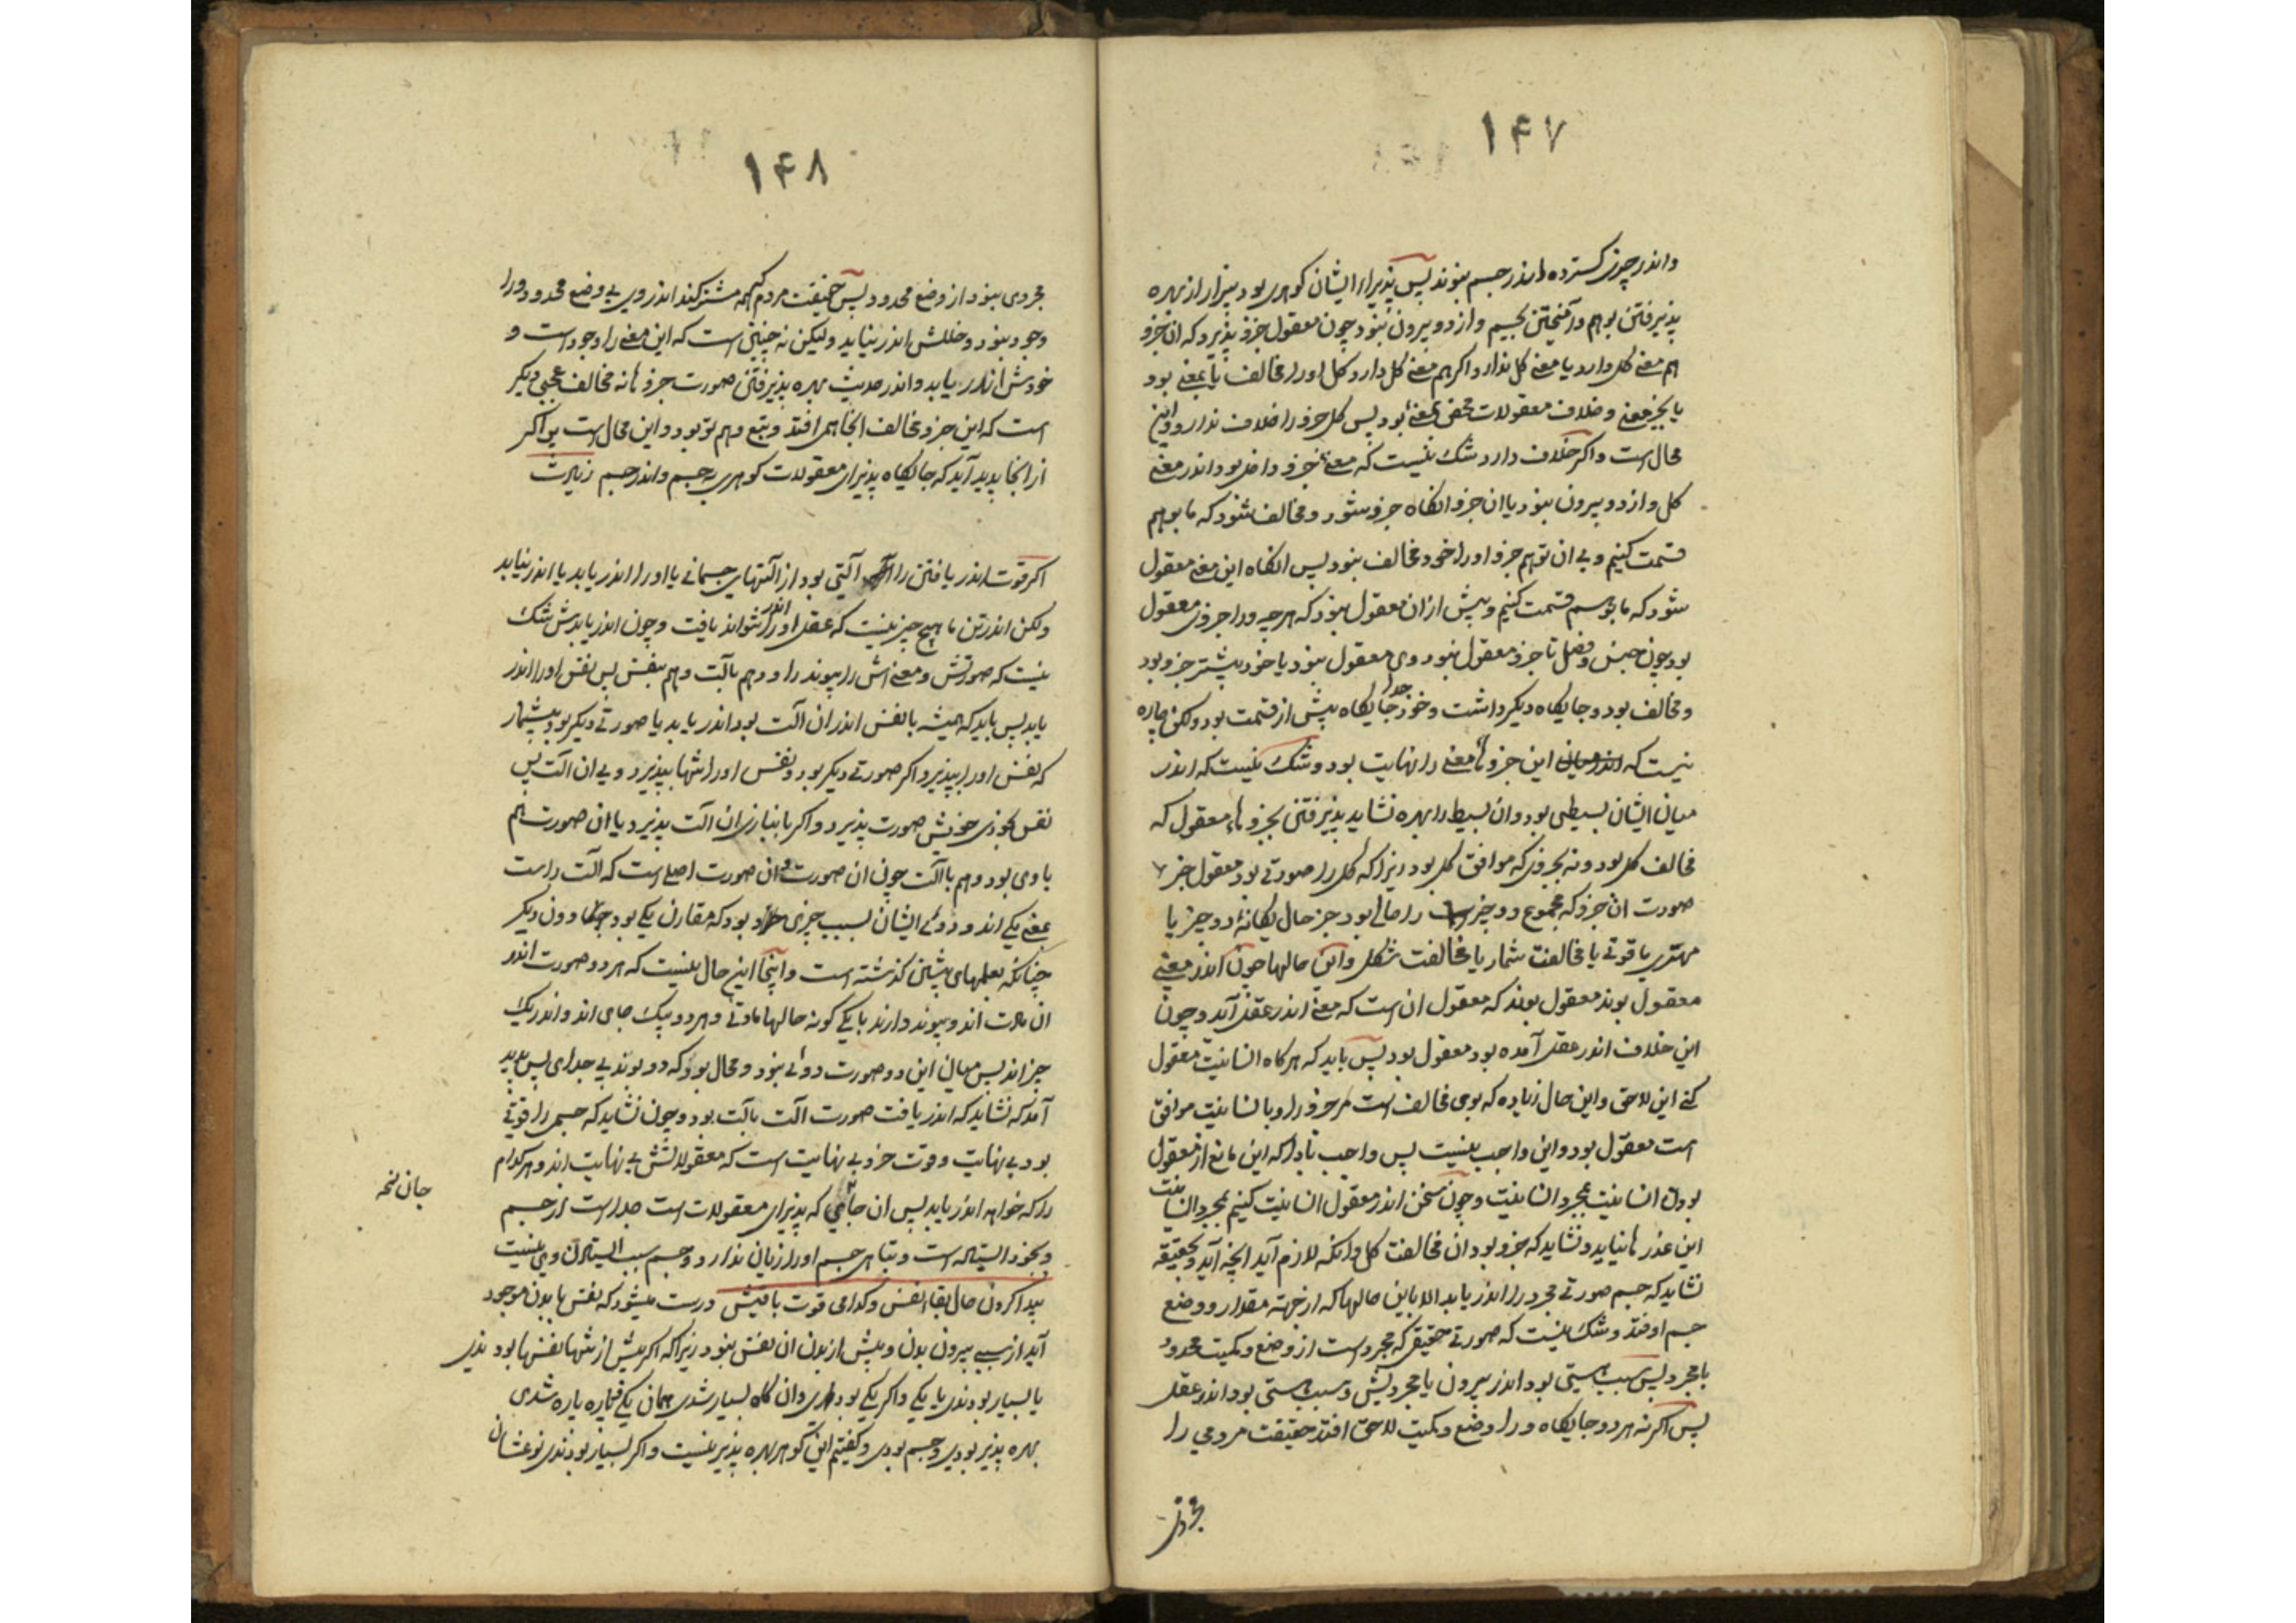 ۱۴۷
واندر چیزی گسترده اندر جسم نبوند پس پذیراء ایشان گوهری بود بیزار از بهره
پذیرفتن بوهم و آمیختن بجسم و از دو بیرون نبود چون معقول جزو پذیرد که ان جزو
هم معنی کل دارد یا معنی کل ندارد اگر هم معنی کل دارد کل او را مخالف یا بمعنی بود
یا بجز معنی و خلاف معقولات محض بمعنی بود پس کل جزو را خلاف ندارد و این
محال است و اگر خلاف دارد شک نیست که معنی جزو داخل بود اندر معنی
کل و از دو بیرون نبود یا ان جزو انگاه جزو شود و مخالف شود که ما بوهم
قسمت کنیم و بی ان توهم جزو او را خود مخالف نبود پس انگاه این معنی معقول
شود که ما بوهم قسمت کنیم و پیش ازان معقول نبود که هرچه ورا جزوی معقول
بود چون جنس و فصل تا جزو معقول نبود وی معقول نبود یا خود پیشتر جزو بود
و مخالف بود و جایگاه دیگر داشت و خود جدا جایگاه پیش از قسمت بود ولکن چاره
نیست که این جزو ها معنی را نهایت بود و شک نیست که اندر
میان ایشان بسیطی بود و ان بسیط را بهره نشاید پذیرفتن بجزو هاء معقول که
مخالف کل بود و نه بجزوی که موافق کل بود زیرا که کل را صورتی بود معقول جز
صورت ان جزو که مجموع دو چیز را حالی بود جز حال یگانه دو چیز یا
مهتری یا قوتی یا مخالفت شمار یا مخالفت شکل و این حالها چون اندر معنی
معقول بوند معقول بوند که معقول ان است که معنی اندر عقل آید و چون
این خلاف اندر عقل آمده بود معقول بود پس باید که هرگاه انسانیت معقول
کنی این لاحق و این حال زیاده که بوی مخالف است هر جزو را و بانسانیت موافق
است معقول بود و این واجب نیست پس واجب نادارکه این مانع از معقول
بودن انسانیت بمجرد انسانیت و چون سخن اندر معقول انسانیت کنیم بمجرد انسانیت
این عذر ها نیاید و نشاید که جزو بود ان مخالفت کل وانگه لازم آید انچه آید و بحقیقه
نشاید که جسم صورتی مجرد را اندر یابد الا باین حالها که از جهته مقدار و وضع
جسم اوفتد و شک نیست که صورتی حقیقی که مجرد است از وضع و کمیت محدود
یا مجرد پس سبب هستی بود اندر بیرون یا مجردیش و سبب هستی بود اندر عقل
پس اگر نه هر دو جایگاه ورا وضع و کمیت لاحق افتد حقیقت مردمی را
۱۴۸
مجردی نبود از وضع محدود پس حقیقت مردم که همه مشترکند اندر وی بی وضع محدود ورا
وجود نبود و خللش اندر نیاید ولیکن نه چنین است که این معنی را وجود است و
خودش اندر یابد و اندر حدیث بهره پذیرفتن صورت جزو ها نه مخالف عجبی دیگر
است که این جزو مخالف انجا همی افتد و بتبع وهم تو بود و این محال است پس اگر
از انجا پدید آید که جایگاه پذیرای معقولات گوهری نه جسم و اندر جسم نیست
اگر قوت اندر یافتن را آلتی بود از آلتهای جسمانی یا او را اندر یابد یا اندر نیابد
ولکن اندر تن ما هیچ چیز نیست که عقل او را اندر نتواند یافت و چون اندر یابدش شک
نیست که صورتش و معنی اش را پیوند را و هم بآلت و هم بنفس پس نفس او را اندر
یابد پس باید که همیشه بانفس اندر ان الت بود اندر یابد یا صورتی دیگر بود بیشمار
که نفس او را بپذیرد اگر صورتی دیگر بود و نفس او را تنها بپذیرد و بی ان الت پس
نفس بخودی خویش صورت پذیرد و اگر بانبازی ان الت پذیرد یا ان صورت هم
با وی بود و هم با آلت چون ان صورت و ان صورت اصلی است که آلت راست
بمعنی یکی اند و دوئی ایشان بسبب چیزی بود که مقارن یکی بود دون دیگر
چنانکه بعلمهای پیشین گذشته است و اینجا این حال نیست که هر دو صورت اندر
ان مات اند و پیوند دارند با یکی گونه حالها مادتی و هر دو بیک جای اند و اندر یک
چیز اند پس میان این دو صورت دوئی نبود و محال بود که دو بوند بی جدای پس پدید
آمد که نشاید که اندر یافت صورت الت بآلت بود و چون نشاید که جسمی را قوتی
بود بی نهایت و قوت خرد بی نهایت است که معقولاتش بی نهایت اند و هر کدام
را که خواهد اندر یابد پس ان جائی که پذیرای معقولات است جداست از جسم
و بخود ایستاده است و تباهی جسم او را زیان ندارد و جسم سبب ایستادن وی نیست
پیدا کردن حال بقاء نفس و کدامی قوت باقیش درست میشود که نفس با بدن موجود
آید از سببی بیرون بدن و پیش از بدن ان نفس نبود زیرا که اگر پیش از تنها نفسها بودندی
یا بسیار بودندی یا یکی و اگر یکی بودی وان گاه بسیار شدی همان یکی پاره پاره شدی
بهره پذیر بودی و جسم بودی و گفتیم این گوهر بهره پذیر نیست و اگر بسیار بودندی نوعشان
جان نخه